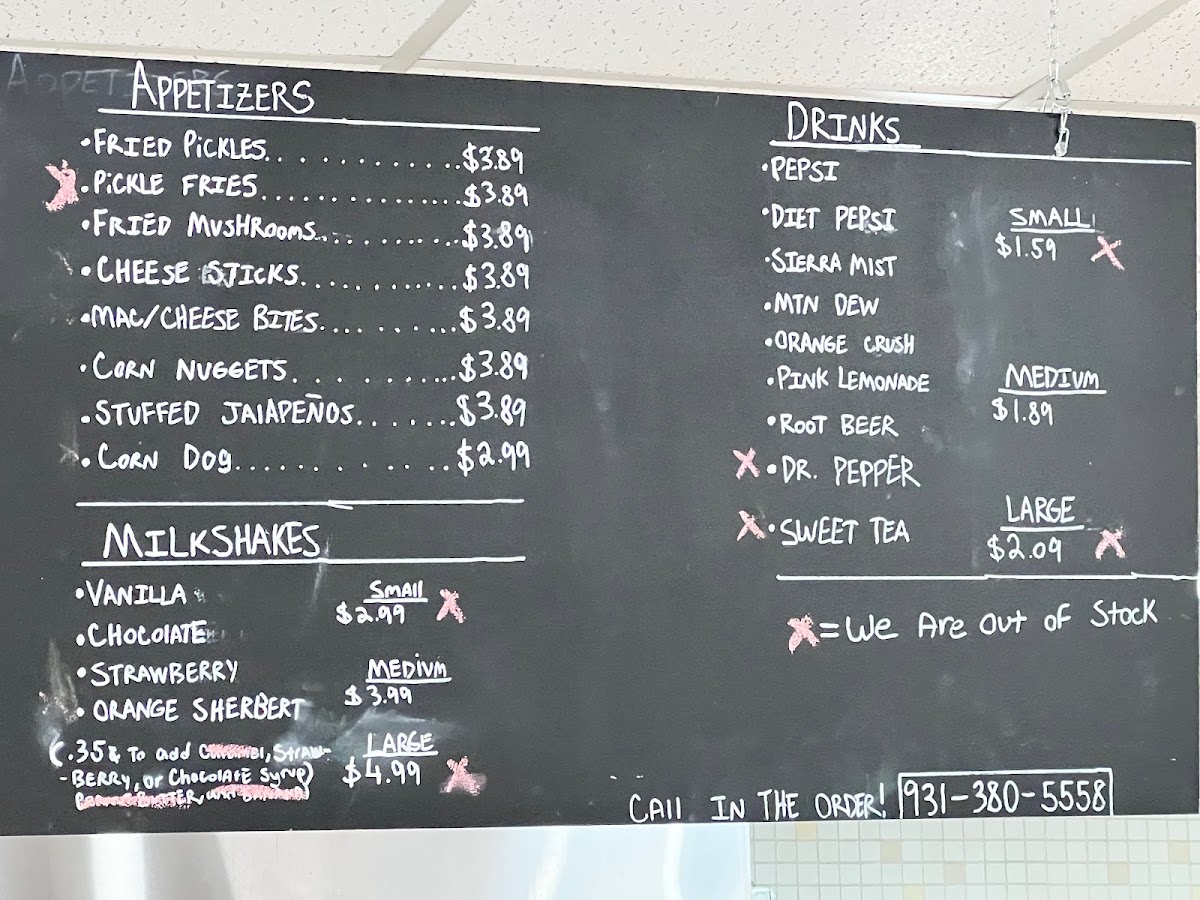 APPETIZERS
APPETIZERS
•FRIED PICKLES..............$3.89
X •PICKLE FRIES...............$3.89
•FRIED MUSHROOMS............$3.89
•CHEESE STICKS.............$3.89
•MAC/CHEESE BITES..........$3.89
•CORN NUGGETS............$3.89
•STUFFED JALAPEÑOS.......$3.89
•CORN DOG.............$2.99
MILKSHAKES
•VANILLA
•CHOCOLATE
•STRAWBERRY
•ORANGE SHERBERT
SMALL
$2.99 X
MEDIUM
$3.99
LARGE
$4.99 X
(.35¢ To add , STRAW-
-BERRY, or CHOCOLATE Syrup)
DRINKS
•PEPSI
•DIET PEPSI
•SIERRA MIST
•MTN DEW
•ORANGE CRUSH
•PINK LEMONADE
•ROOT BEER
X •DR. PEPPER
X •SWEET TEA
SMALL
$1.59 X
MEDIUM
$1.89
LARGE
$2.09 X
X = We Are Out of Stock
CALL IN THE ORDER! 931-380-5558